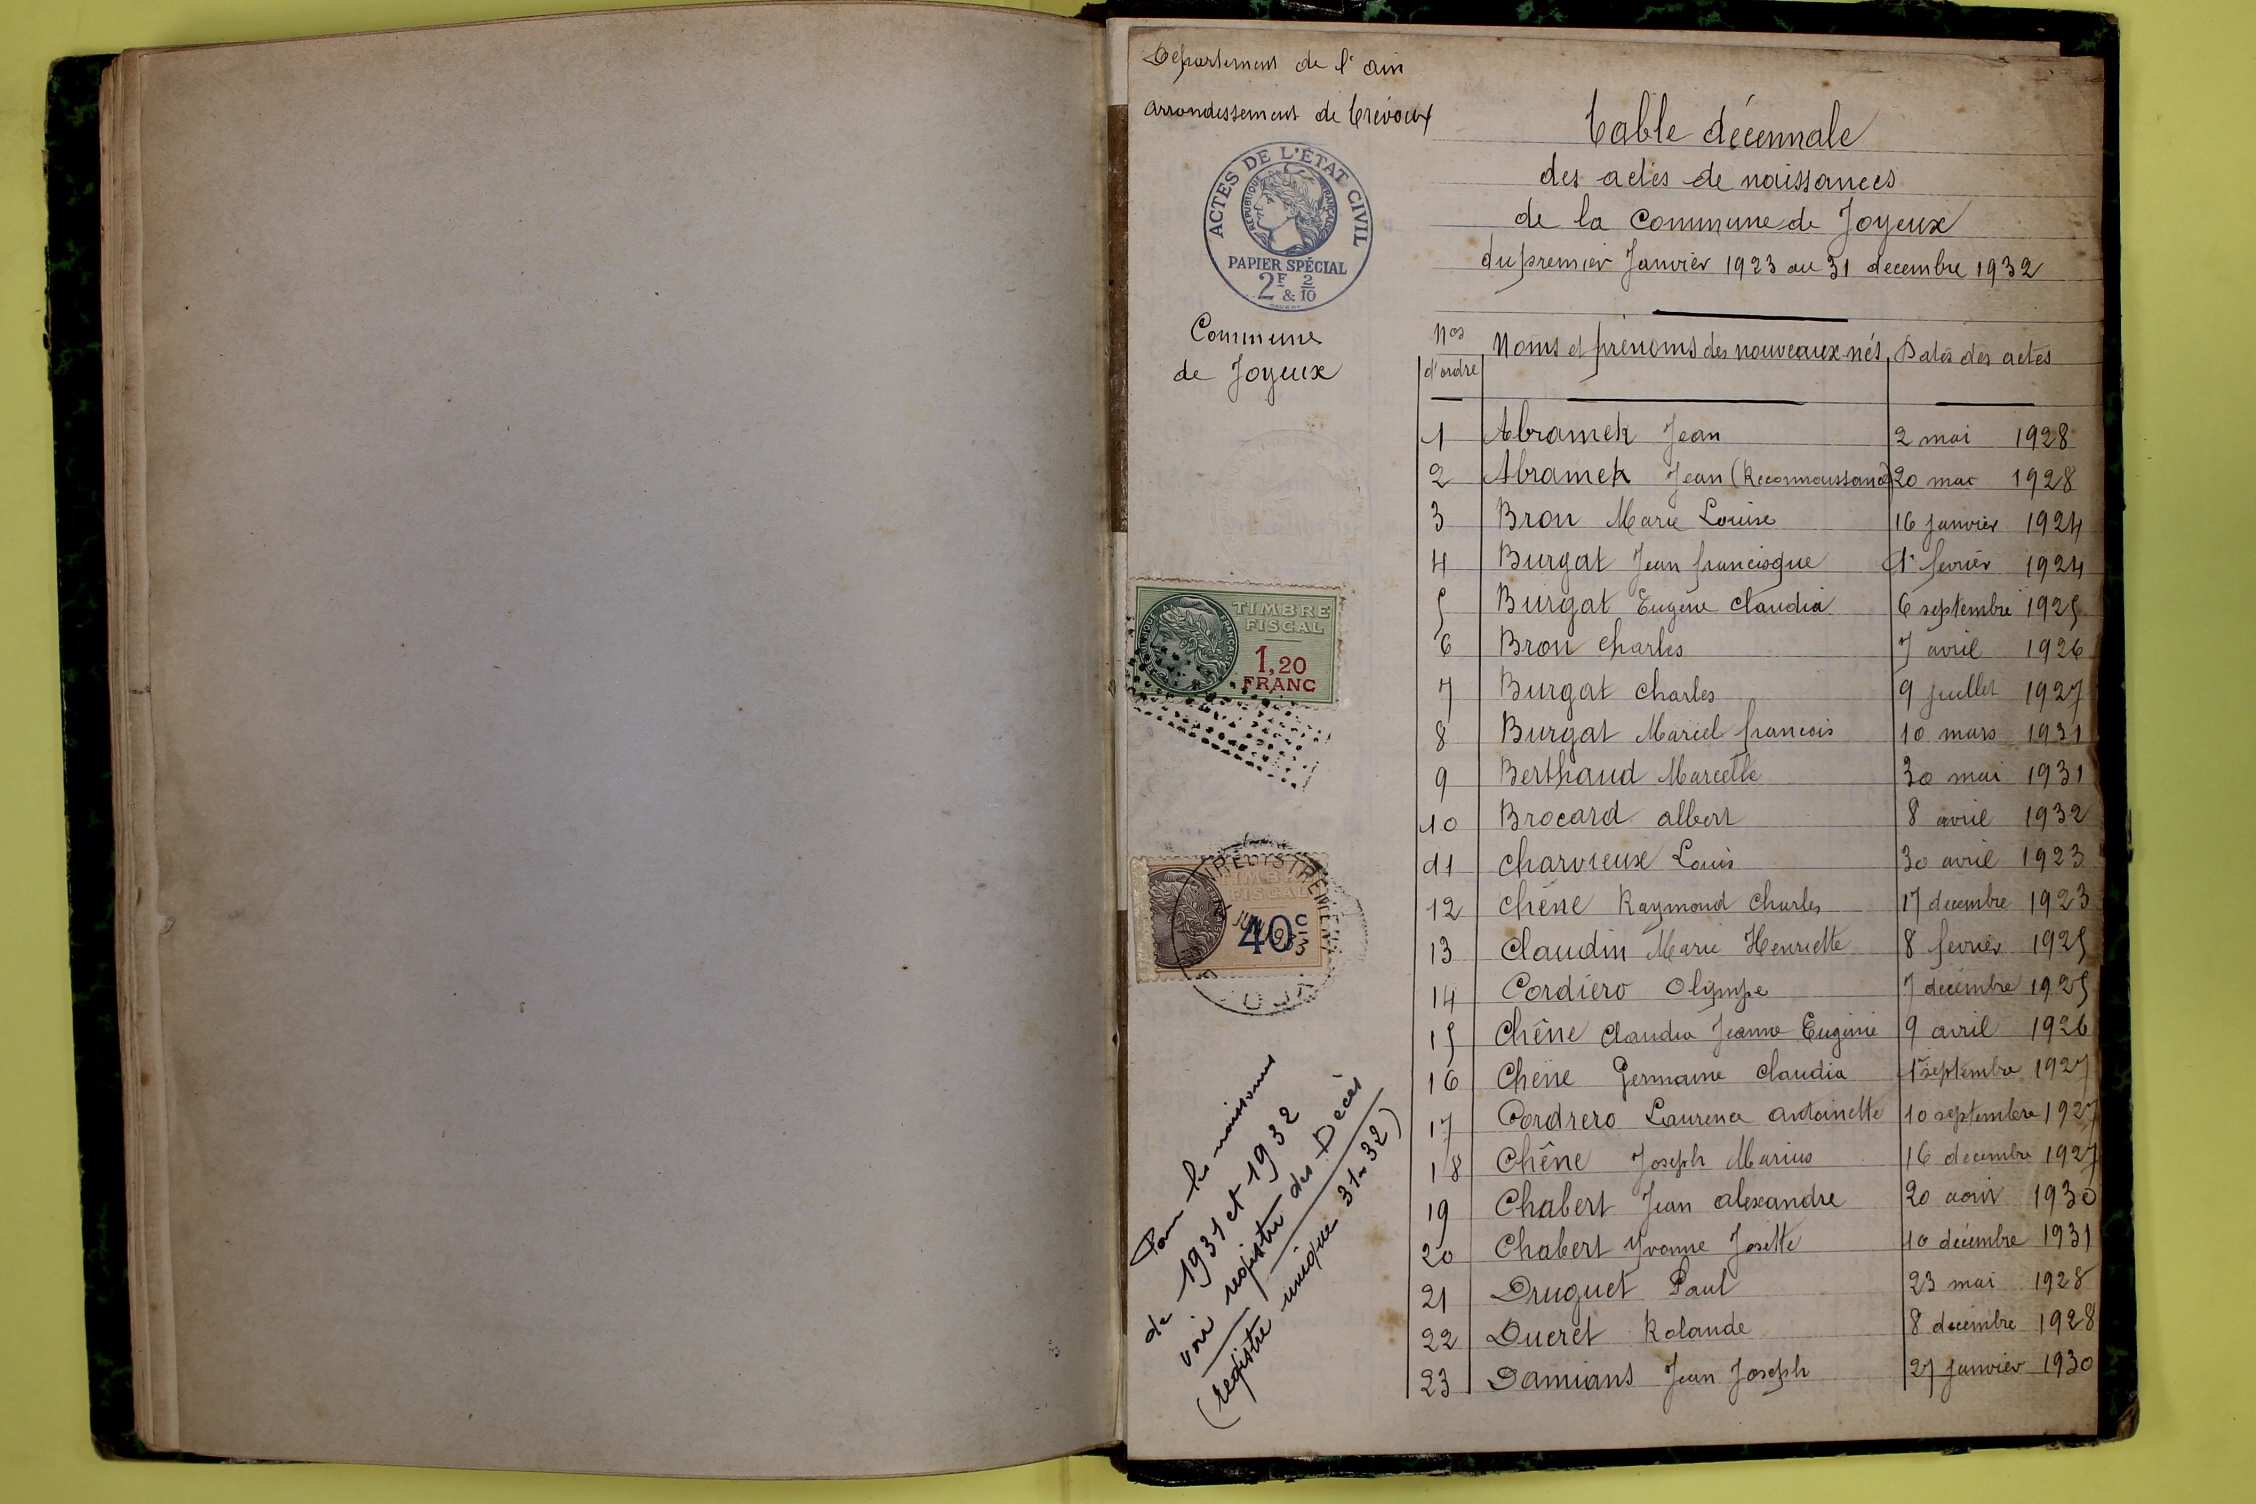 Département de l'ain
arrondissement de Trévoux
ACTES DE L'ÉTAT CIVIL
RÉPUBLIQUE FRANÇAISE
PAPIER SPÉCIAL
2F & 2/10
Commune
de Joyeux
TIMBRE
FISCAL
1,20
FRANC
ENREGISTREMENT
TIMBRE
FISCAL
40c
Pour les naissances
de 1931 et 1932
voir registre des Décès
(registre unique 31-32)
Table décennale
des actes de naissances
de la Commune de Joyeux
du premier Janvier 1923 au 31 decembre 1932
Nos d'ordre Noms et prénoms des nouveaux-nés Dates des actes
1 Abramek Jean 2 mai 1928
2 Abramek Jean (Reconnaissance) 20 mai 1928
3 Bron Marie Louise 16 janvier 1924
4 Burgat Jean francisque 1er fevrier 1924
5 Burgat Eugène Claudia 6 septembre 1925
6 Bron Charles 7 avril 1926
7 Burgat Charles 9 juillet 1927
8 Burgat Marcel francois 10 mars 1931
9 Berthaud Marcelle 30 mai 1931
10 Brocard albert 8 avril 1932
11 Charvieux Louis 30 avril 1923
12 Chêne Raymond Charles 17 decembre 1923
13 Claudin Marie Henriette 8 fevrier 1925
14 Cordiero Olympe 7 décembre 1925
15 Chêne Claudia Jeanne Eugénie 9 avril 1926
16 Chêne Germaine Claudia 1er septembre 1927
17 Cordrero Laurence antoinette 10 septembre 1927
18 Chêne Joseph Marius 16 decembre 1927
19 Chabert Jean alexandre 20 aout 1930
20 Chabert Yvonne Josette 10 décembre 1931
21 Druguet Paul 23 mai 1928
22 Ducret Rolande 8 décembre 1928
23 Damians Jean Joseph 27 janvier 1930